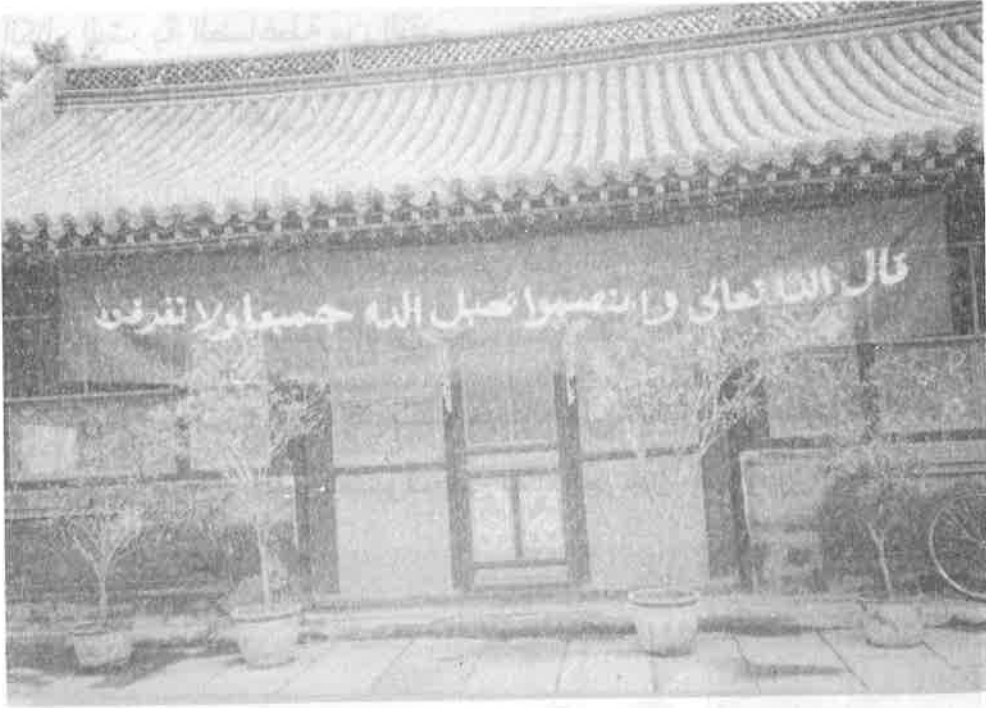 قال الله تعالى واعتصموا بحبل الله جميعا ولا تفرقوا